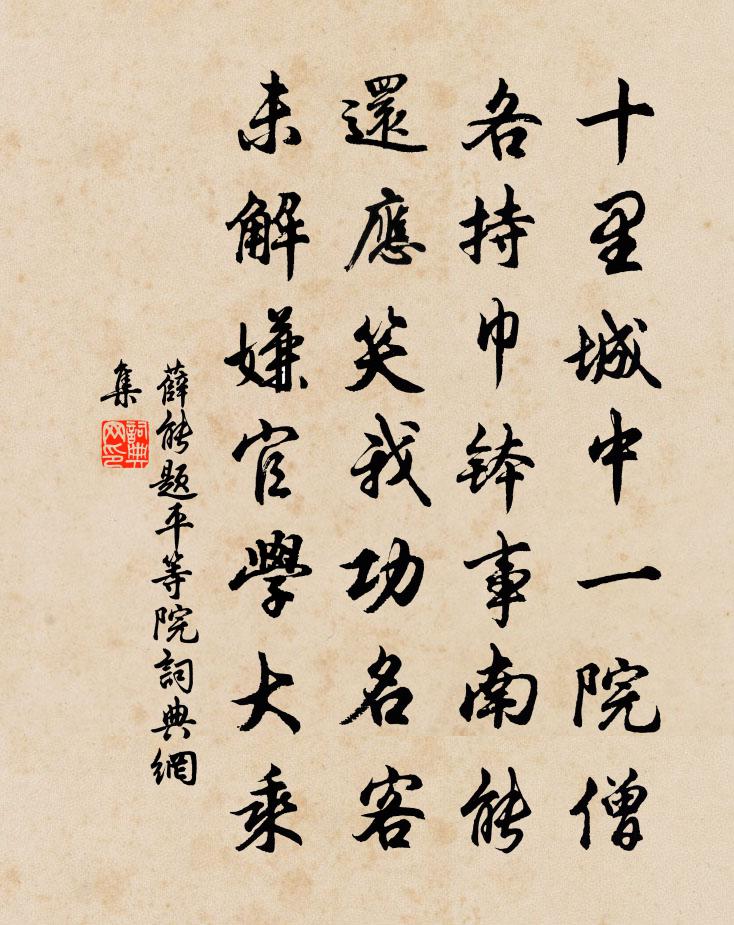 十里城中一院僧
各持巾鉢事南能
還應笑我功名客
未解嫌官學大乘
薛能題平等院詞典網
集
詞典
网印